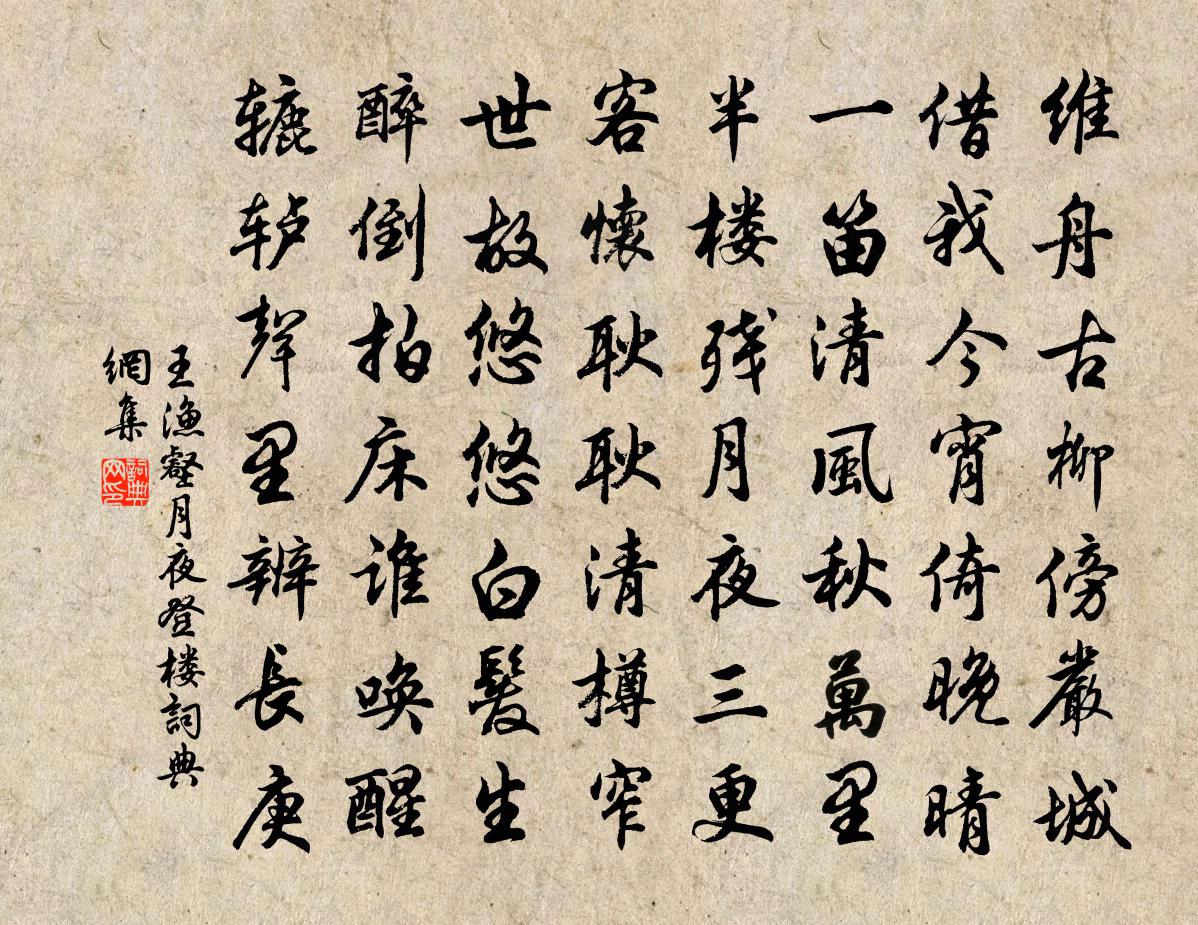 维舟古柳傍嚴城
借我今宵倚晚晴
一笛清風秋萬里
半楼残月夜三更
客懷耿耿清樽窄
世故悠悠白髮生
醉倒拍床谁唤醒
辘轳聲里辨長庚
王漁壑月夜登楼詞典
網集
詞典网印